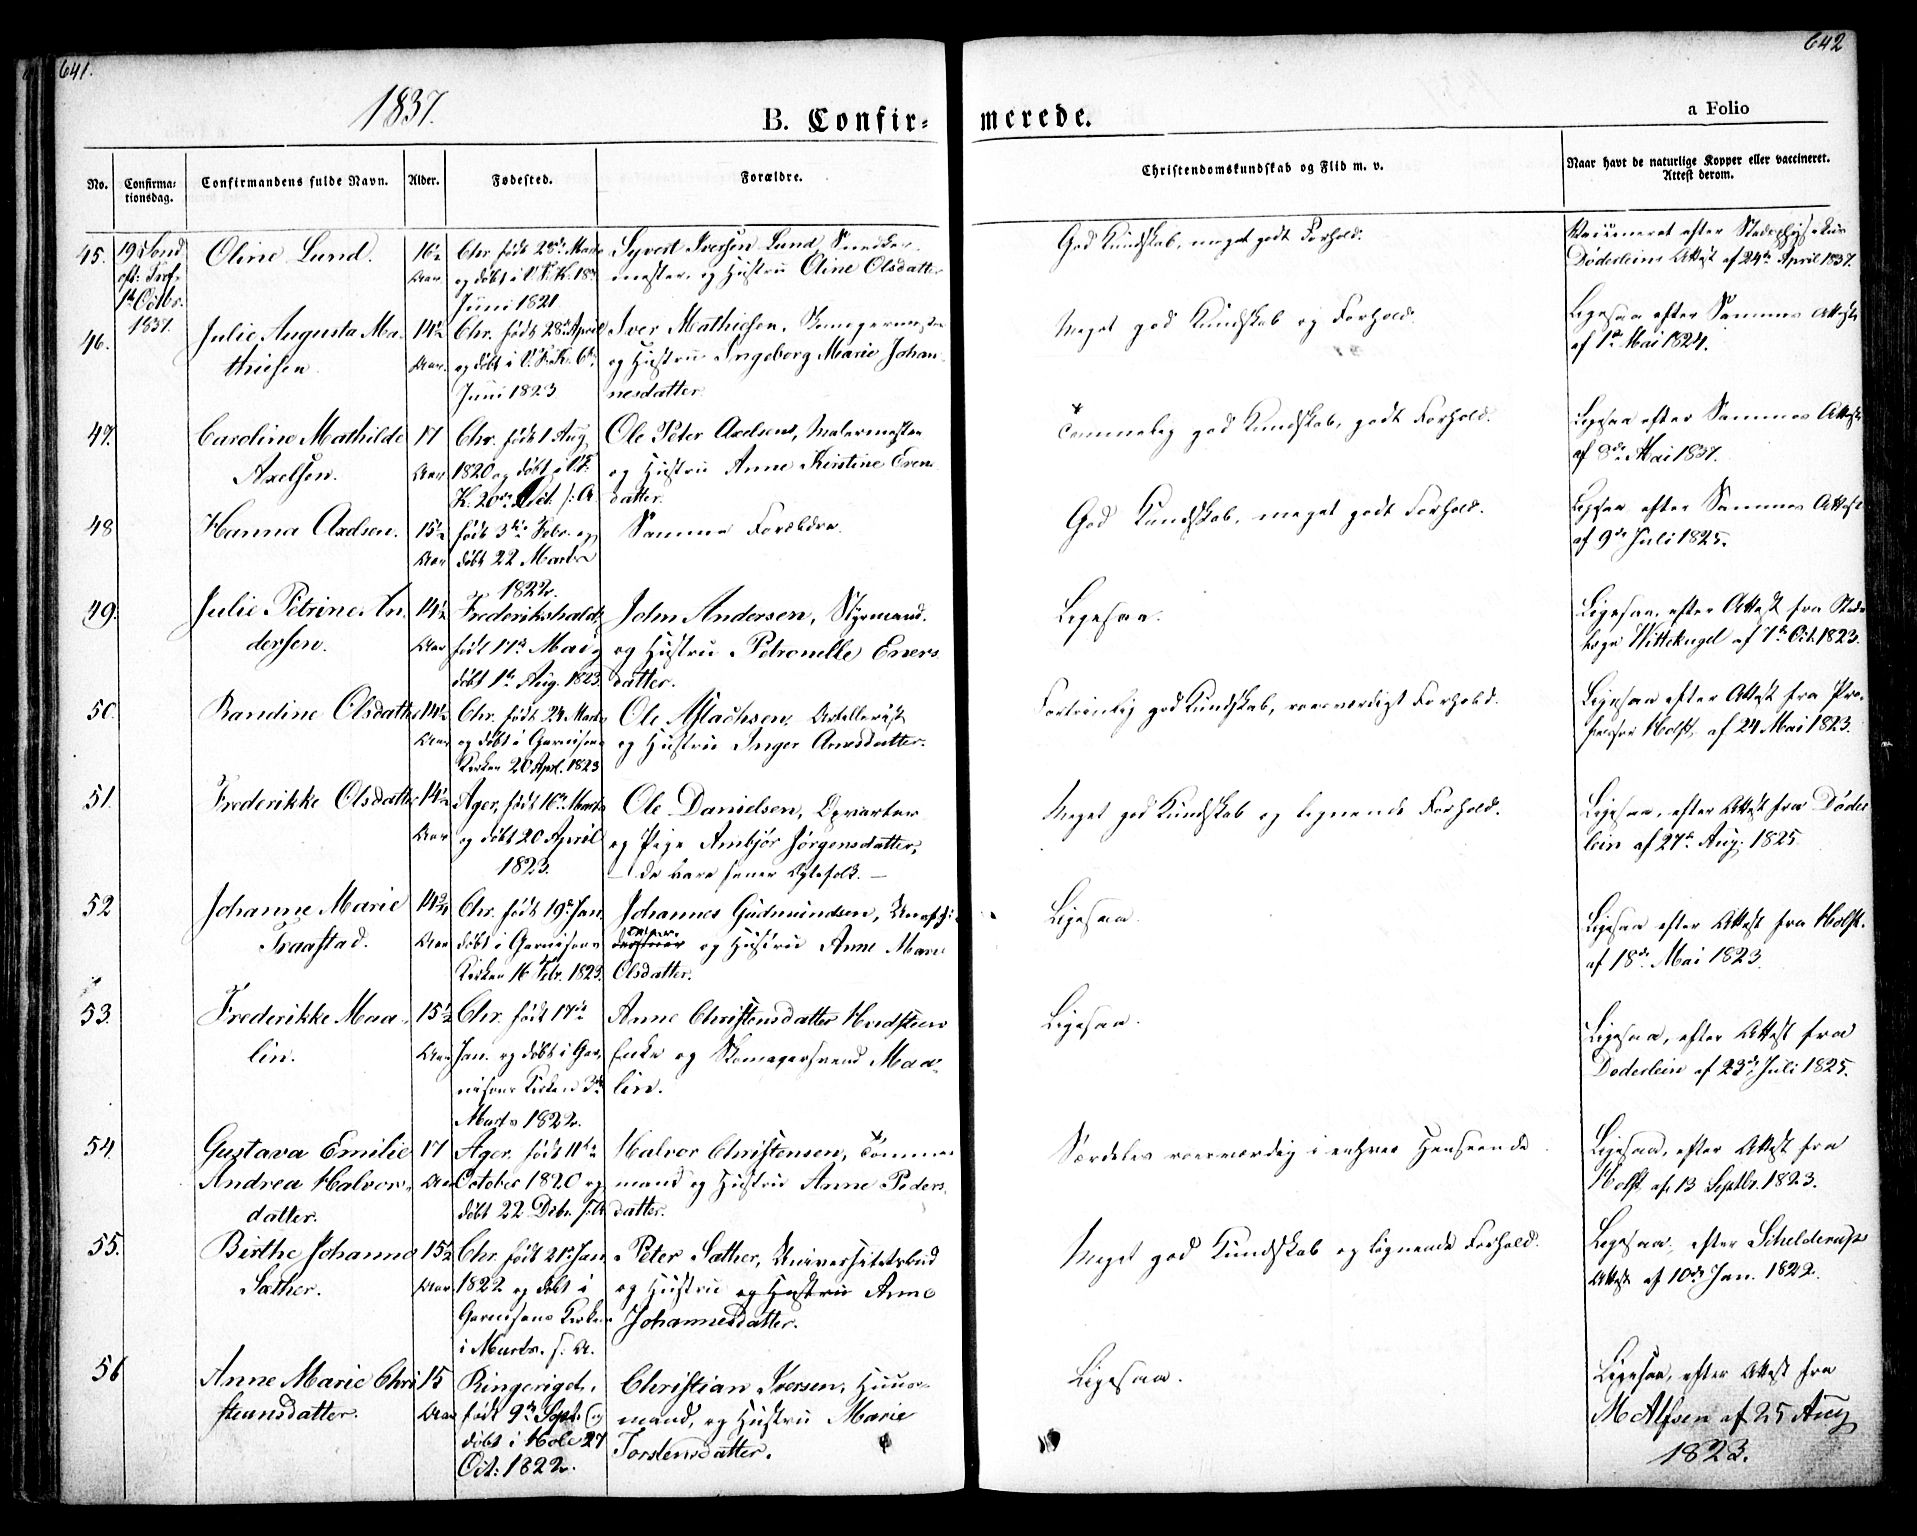 641.
642
1837.
B. Confir-
merede.
a Folio
No.
Confirma-
tionsdag.
Confirmandens fulde Navn.
Alder.
Fødested.
Forældre.
Christendomskundskab og Flid m. v.
Naar havt de naturlige Kopper eller vaccineret.
Attest derom.
45.
19 Sönd
eft: Tref.
1ste Octbr.
1837.
Oline Lund.
16½
Aar
Chr. født 28de Marts
og døbt i V. F. K. 18de
Juni 1821
Syvert Iversen Lund, Snedker-
mester, og Hustru Oline Olsdatter
God Kundskab, meget godt Forhold.
Vaccineret efter
Døderleins Attest af 24de April 1837.
46.
Julie Augusta Ma-
thiesen.
14½
Aar.
Chr. født 28de April
og døbt i V. F. K. 6te
Juni 1823
Iver Mathiesen, Skomagermester
og Hustru Ingeborg Marie Johan-
nesdatter.
Meget god Kundskab og Forhold.
Ligesaa efter Sammes Attest
af 1ste Mai 1824.
47.
Caroline Mathilde
Axelsen.
17
Aar
Chr. født 1 Aug.
1820 og døbt i V. F.
K. 20de Oct. s: A
Ole Peter Axelsen, Malermester
og Hustru Anne Kirstine Even-
datter.
Temmelig god Kundskab, godt Forhold.
Ligesaa efter Sammes Attest
af 8de Mai 1837.
48
Hanna Axelsen.
15½
Aar
født 3die Febr. og
døbt 22 Marts
1822.
Samme Forældre.
God Kundskab, meget godt Forhold.
Ligesaa efter Sammes Attest
af 9de Juli 1825.
49.
Julie Petrine An-
dersen.
14½
Aar
Frederikshald,
født 17de Mai,
døbt 1ste Aug. 1823.
John Andersen, Styrmand.
og Hustru Petronelle Eners-
datter.
Ligesaa.
Ligesaa, efter Attest fra Stads-
læge Wittekugel af 7de Oct. 1823.
50.
Randine Olsdatter
14½
Aar
Chr. født 24 Marts
og døbt i Garnisons
Kirken 20 April. 1823
Ole Aslachsen, Artillerist
og Hustru Inger Arnesdatter.
Fortrinlig god Kundskab, roesværdigt Forhold.
Ligesaa efter Attest fra Pro-
fessor Holst, af 24 Mai 1823.
51.
Frederikke Olsdatter
14½
Aar
Ager, født 16de Marts
og døbt 20 April
1823.
Ole Danielsen, Opvarter
og Pige Ambjør Jørgensdatter,
— de bare senere Ægtefolk. —
Meget god Kundskab og lignende Forhold.
Ligesaa, efter Attest fra Døder
lein af 27de Aug. 1825
52
Johanne Marie
Traastad.
14¾
Aar
Chr. født 19de Jan.
døbt i Garnisons
Kirken 16 Febr. 1823.
Johannes Gudmundsen,
og Hustru Anne Marie
Olsdatter.
Ligesaa.
Ligesaa efter Attest fra Holst.
af 18de Mai 1823.
53.
Frederikke Maa-
lin.
15½
Aar
Chr. født 17de
Jan. og døbt i Gar-
nisons Kirken 3die
Marts 1822.
Anne Christensdatter Hudsteen
Enke og Skomagersvend Maa-
lin.
Ligesaa.
Ligesaa, efter Attest fra
Døderlein af 23de Juli 1825.
54.
Gustava Emilie
Andrea Halvors-
datter.
17
Aar
Ager. født 11te
October 1820 og
døbt 22 Debr. s: A
Halvor Christensen, Tømmer
mand og Hustru Anne Peders-
datter.
Særdeles roesværdig i enhver Henseende.
Ligesaa, efter Attest fra
Holst af 13 Septbr. 1823.
55.
Birthe Johanne
Sather.
15½
Aar
Chr. født 21de Jan.
1822 og døbt i
Garnisons Kirken
i Marts. s. A.
Peter Sather, Universitetsbud
og Hustru og Hustru Anne
Johannesdatter.
Meget god Kundskab og lignende Forhold.
Ligesaa, efter Schelderups
Attest af 10de Jan. 1822.
56
Anne Marie Chri
stiansdatter.
15
Aar
Ringeriget,
født 9de Sept. og
døbt i Hole 27
Oct: 1822.
Christian Iversen, Huus-
mand, og Hustru Marie
Torstensdatter.
Ligesaa.
Ligesaa, efter Attest fra
M. Alfsen af 25 Aug
1823.